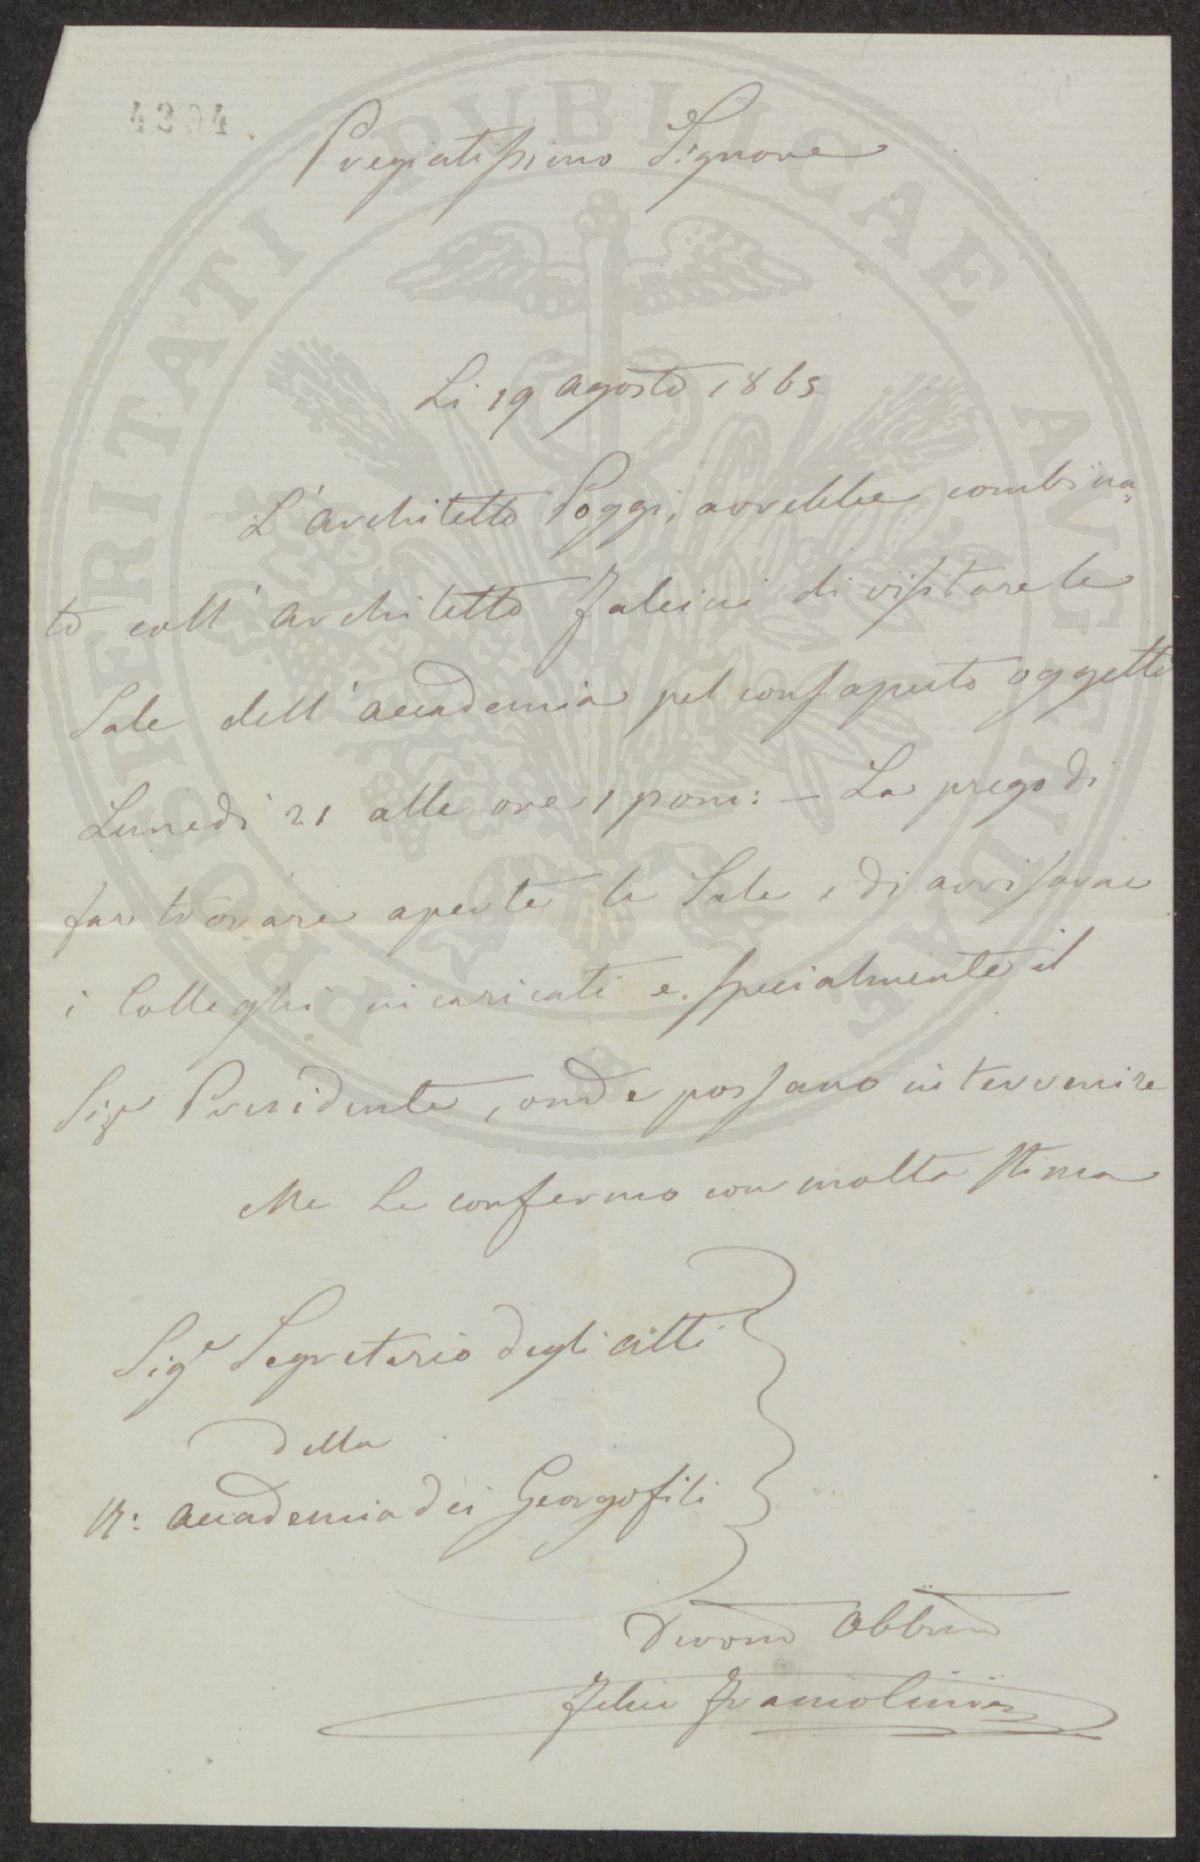 Pregiatissimo Signore
Li 19 agosto 1865
L'architetto Poggi, avrebbe combina-
to coll' architetto Falcini di visitare le
Sale dell' accademia pel consaputo oggetto
Lunedì 21 alle ore 1 pom: – La prego di
far trovare aperte le Sale, e di avvisarne
i Colleghi incaricati e specialmente il
Sigr Presidente, onde possano intervenire
Me Le confermo con molta stima
Sigr Segretario degli atti
della
R: accademia dei Georgofili
Devmo Obbmo
Felice Francolini
PROSPERITATI PVBLICAE AVGENDAE